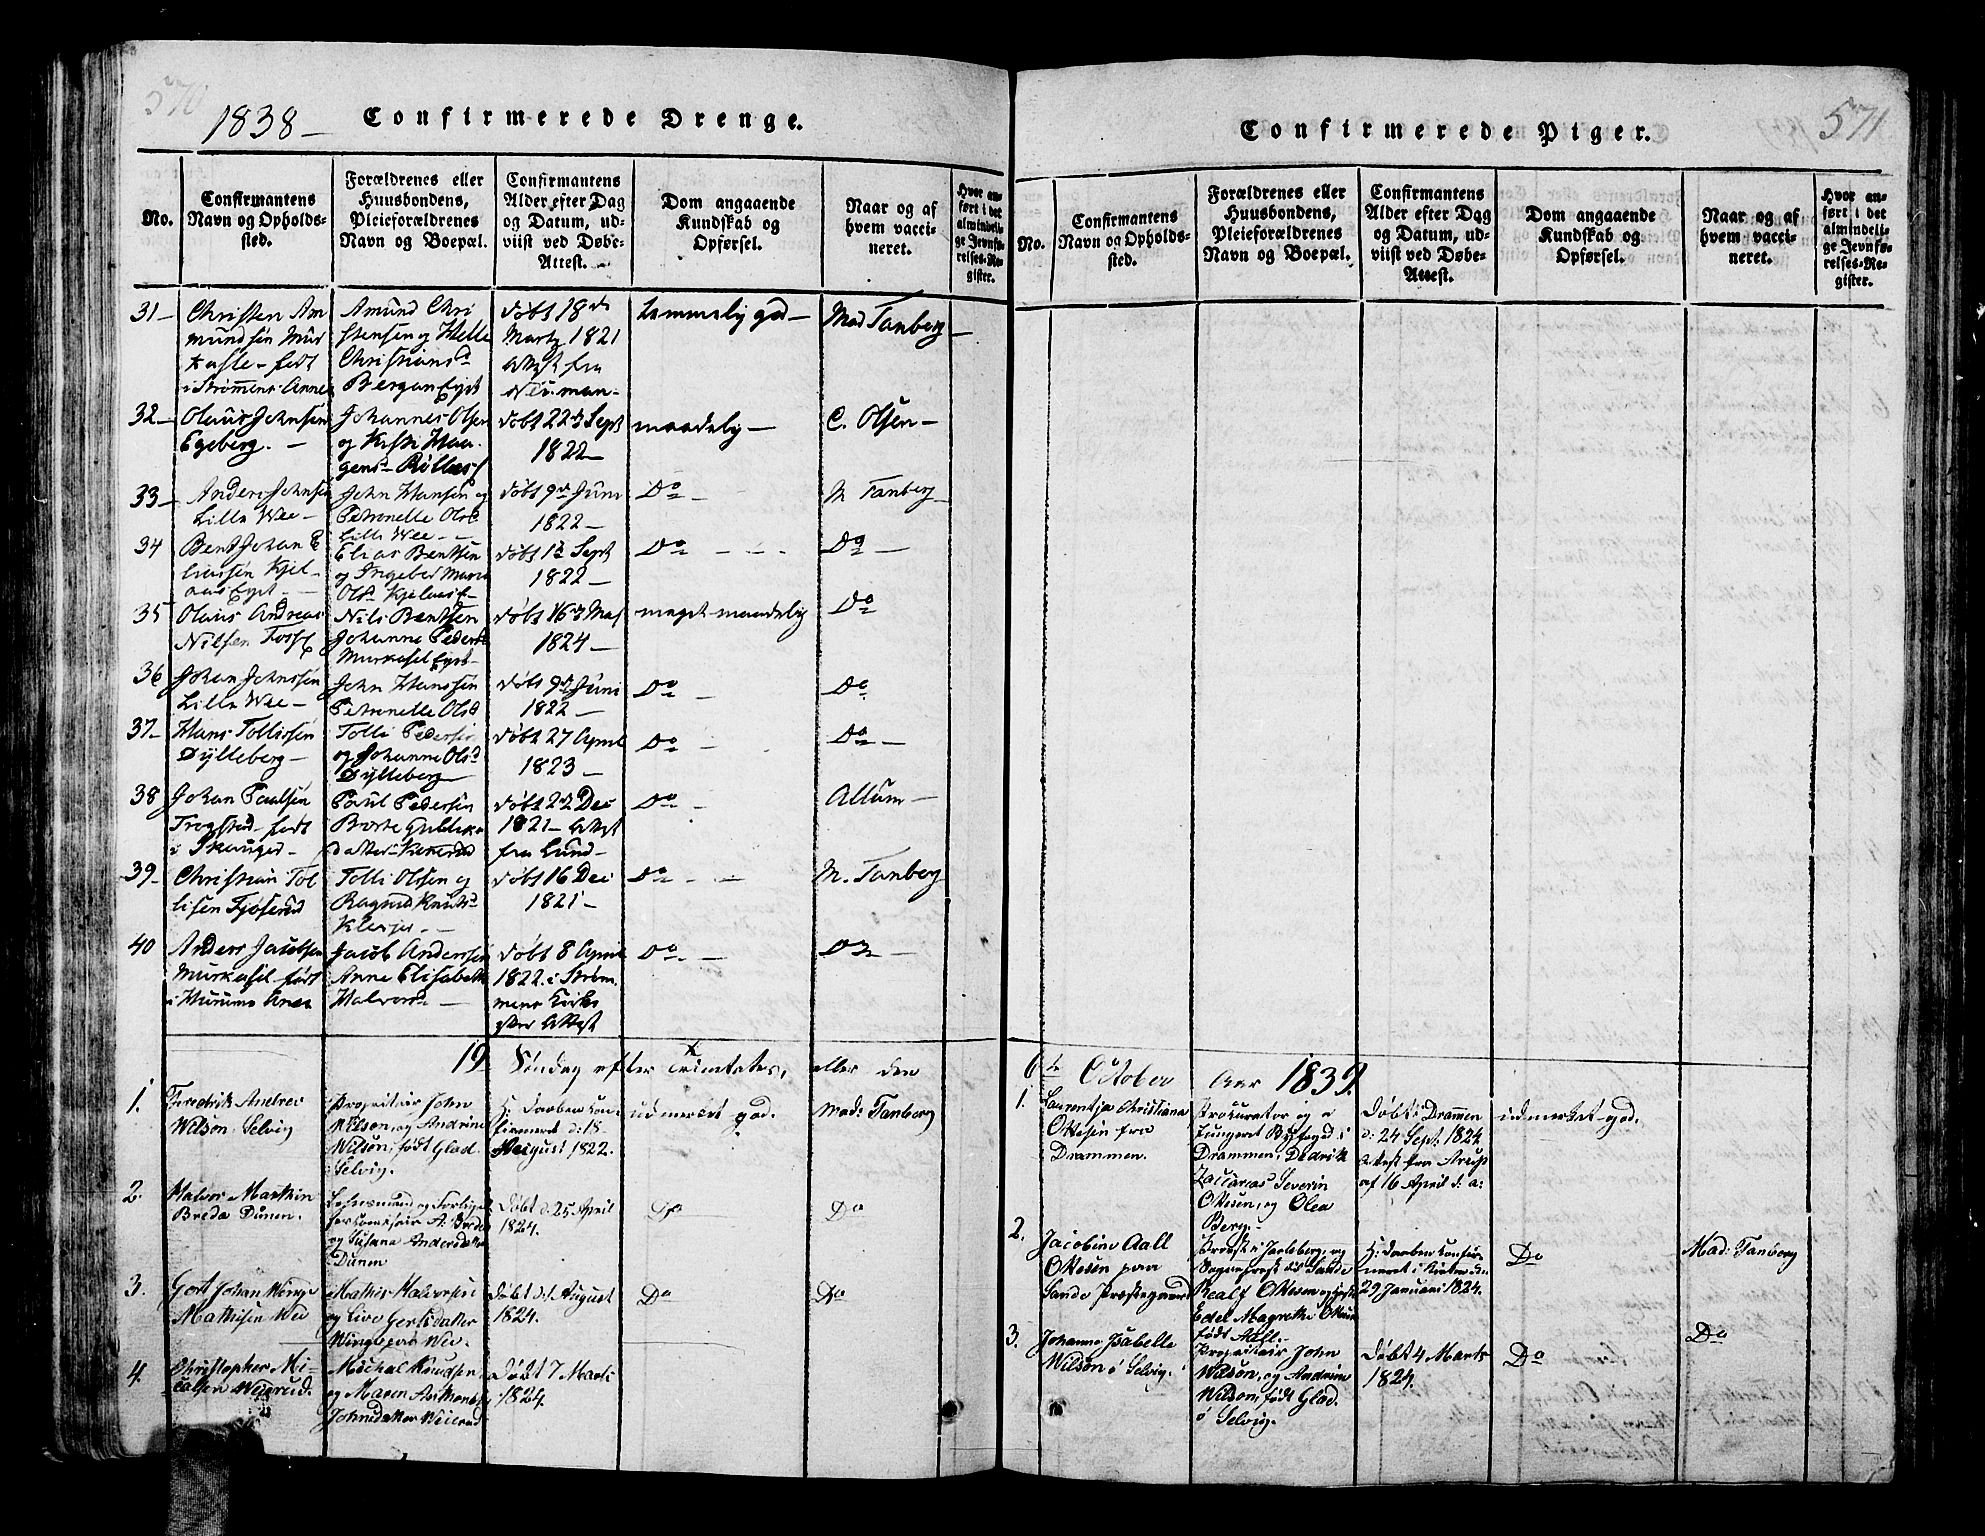 570
1838 –
Confirmerede Drenge.
No.
Confirmantens Navn og Opholds-sted.
Forældrenes eller Huusbondens, Pleieforældrenes Navn og Boepæl.
Confirmantens Alder efter Dag og Datum, ud-viist ved Døbe-Attest.
Dom angaaende Kundskab og Opførsel.
Naar og af hvem vacci-neret.
Hvor an-ført i det almindeli-ge Jevnfø-relses-Re-gister.
31 –
Christen Am
mundsen Mur
kasle – født
i Strømens Annex
Amund Chri
stensen og Helle
Christiansd
Bergan Eget
døbt 18de
Martz 1821
Attest fra
Neuman –
temmelig god –
Mad Tanberg –
32 –
Olaus Johnsen
Egeberg. –
Johannes Olsen
og Kisti Haa
gens –
døbt 22de Sept
1822 –
maadelig –
C. Olsen –
33 –
Anders Johnsen
Lille Wee –
John Hansen og
Petronelle Olsd
Lille Wee –
døbt 9de Juni
1822 –
Do –
M Tanberg –
34
Bent Johan E
liassen Kjel
aas Eget –
Elias Bentsen
og Ingebor Maria
Olsd Kjelaas
døbt 1ste Sept
1822 –
Do – –
Do –
35
Olaus Andreas
Nilsen
Nils Bentsen
Johanne Peders
Murkasel Eget –
døbt 16de Mai
1824 –
meget maadelig
Do
36
Johan Johnssen
Lille Wee –
John Hanssen
Petronelle Olsd
døbt 9de Juni
1822 –
Do –
Do
37 –
Hans Tollissen
Dylleberg –
Tolli Pedersen
og Johanne Olsd
Dylleberg
døbt 27 April
1823 –
Do –
Do –
38
Johan Paulsen
Trogstad – født
i Skouger –
Paul Pedersen
Borte
datter
døbt 22de Dec
1821 – Attest
fra Lund –
Do –
Allum –
39 –
Christian Tol
lisen
Tolli Olssen og
Ragnild Knuts
døbt 16 Dec
1821 –
Do – –
M. Tanberg
40
Anders Jacobsen
Murkasel født
i Hurums Anex
Jacob Anderssen
Anne Elisabeth
Halvorsd –
døbt 8 April
1822. i Strøm
mens Kirke
efter Attest
Do. –
Do –
19 Søndag efter Trinitatis, eller den
1.
Fredrik Andrew
Wilson, Selvig
Proprietair John
Wilson, og Andrine
Wilson, født Glad.
i Selvig.
H: Daaben con-
firmeret d: 18
August 1822.
udmerket god.
Mad: Tanberg
2.
Halvor Marthin
Breda Dunen.
Lehnsmand og Forligel
sescomissair A: Breda
og Susana Andersdatter
Dunen
Døbt d: 25 April
1824.
Do
Do
3.
Gert Johan Winge
Mathisen Wee
Mathis Halvorsen
og Live Gertsdatter
Winge paa Wee.
Døbt d: 1. August
1824.
Do
Do
4.
Christopher Mi-
calsen Weierud.
Michal Knudsen
og Maren
Johnsdatter Weierud
Døbt 7 Marts
1824.
571
Confirmerede Piger.
No.
Confirmantens Navn og Opholds-sted.
Forældrenes eller Huusbondens, Pleieforældrenes Navn og Boepæl.
Confirmantens Alder efter Dag og Datum, ud-viist ved Døbe-Attest.
Dom angaaende Kundskab og Opførsel.
Naar og af hvem vacci-neret.
Hvor an-ført i det almindeli-ge Jevnfø-relses-Re-gister.
6te October Aar 1839.
1.
Laurentza Christiana
Ottesen fra
Drammen.
Procurator og
fungeret Byfoged i
Drammen, Didrik
Zaccarias Severin
Ottesen, og Olea
Berg. –
Døbt i Drammen
d: 24 Sept: 1824
Attest fra Arup
af 16 April d: a:
udmerket god.
2.
Jacobine Aall
Ottesen paa
Sande Præstegaard
Provst i Jarlsberg, og
Sognepræst til Sande
Realf Ottesen og
Edel Magrethe Ottesen
født Aall. –
H: Daaben confir-
meret i Kirken d:
29 Januari 1824.
Do
Mad: Tanberg
3.
Johanne Isabelle
Wilson i Selvig.
Proprietair John
Wilson, og Andrine
Wilson, født Glad.
i Selvig.
Døbt 4 Marts
1824.
Do
Do